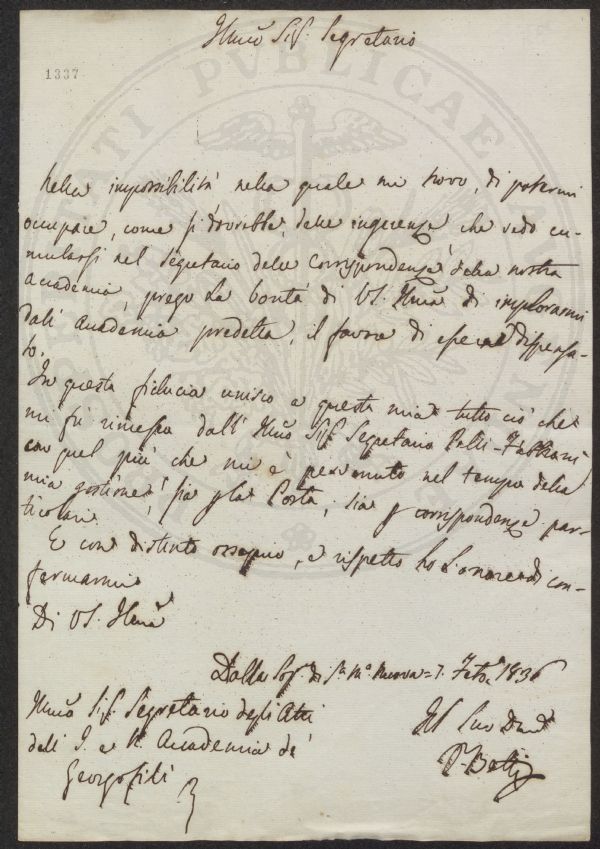 Illmo Sig. Segretario
1337
Nella impossibilità nella quale mi trovo, di potermi
occupare, come si dovrebbe, delle ingerenze che vedo cu-
mularsi nel Segretario delle Corrispondenze della nostra
Accademia, prego La bontà di VS. Illma di implorarmi
dall' Accademia predetta, il favore di esserne dispensa-
to.
In questa fiducia unisco a questa mia tutto ciò che
mi fu rimesso dall' Illmo Sig. Segretario Pelli-Fabbroni
con quel più che mi è pervenuto nel tempo della
mia gestione, sia p la Posta, sia p corrispondenze par-
ticolari
E con distinto ossequio, e rispetto ho L'onore di con-
fermarmi
Di VS. Illma
Dalla di Sa Ma Nuova = 7. Febo 1836
Illmo Sig. Segretario degli Atti
dell' I. e R. Accademia de'
Georgofili
Il Suo
P. Betti